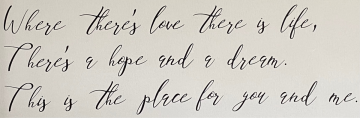 Where there's love there is life,
There's a hope and a dream.
This is the place for you and me.